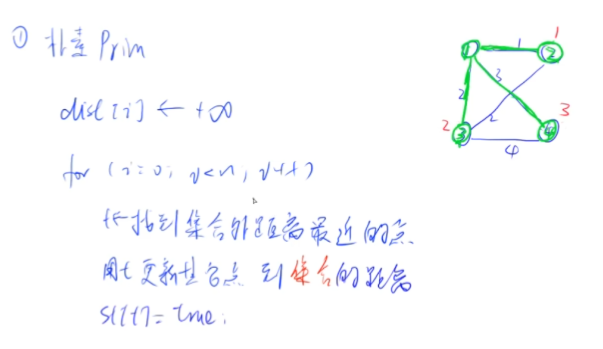 ① 朴素Prim
dist[i] ← +∞
for (i=0; i<n; i++)
t← 找到集合外距离最近的点
用t更新其它点到集合的距离
st[t]=true;
1
1
2
3
2
2
3
2
3
4
4